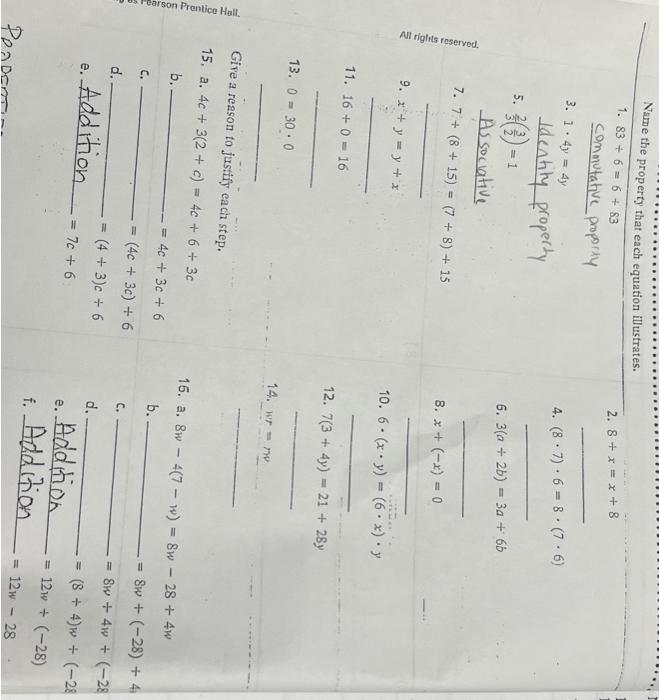 Name the property that each equation illustrates.
1. 83 + 6 = 6 + 83
commutative property
2. 8 + x = x + 8
3. 1 · 4y = 4y
Identity property
4. (8 · 7) · 6 = 8 · (7 · 6)
5. 2/3(3/2) = 1
Associative
6. 3(a + 2b) = 3a + 6b
7. 7 + (8 + 15) = (7 + 8) + 15
8. x + (−x) = 0
9. x + y = y + x
10. 6 · (x · y) = (6 · x) · y
11. 16 + 0 = 16
12. 7(3 + 4y) = 21 + 28y
13. 0 = 30 · 0
14. wr = rw
Give a reason to justify each step.
15. a. 4c + 3(2 + c) = 4c + 6 + 3c
b. = 4c + 3c + 6
c. = (4c + 3c) + 6
d. = (4 + 3)c + 6
e. Addition = 7c + 6
16. a. 8w − 4(7 − w) = 8w − 28 + 4w
b. = 8w + (−28) + 4
c. = 8w + 4w + (−28
d. = (8 + 4)w + (−28
e. Addition = 12w + (−28)
f. Addition = 12w − 28
All rights reserved.
Pearson Prentice Hall.